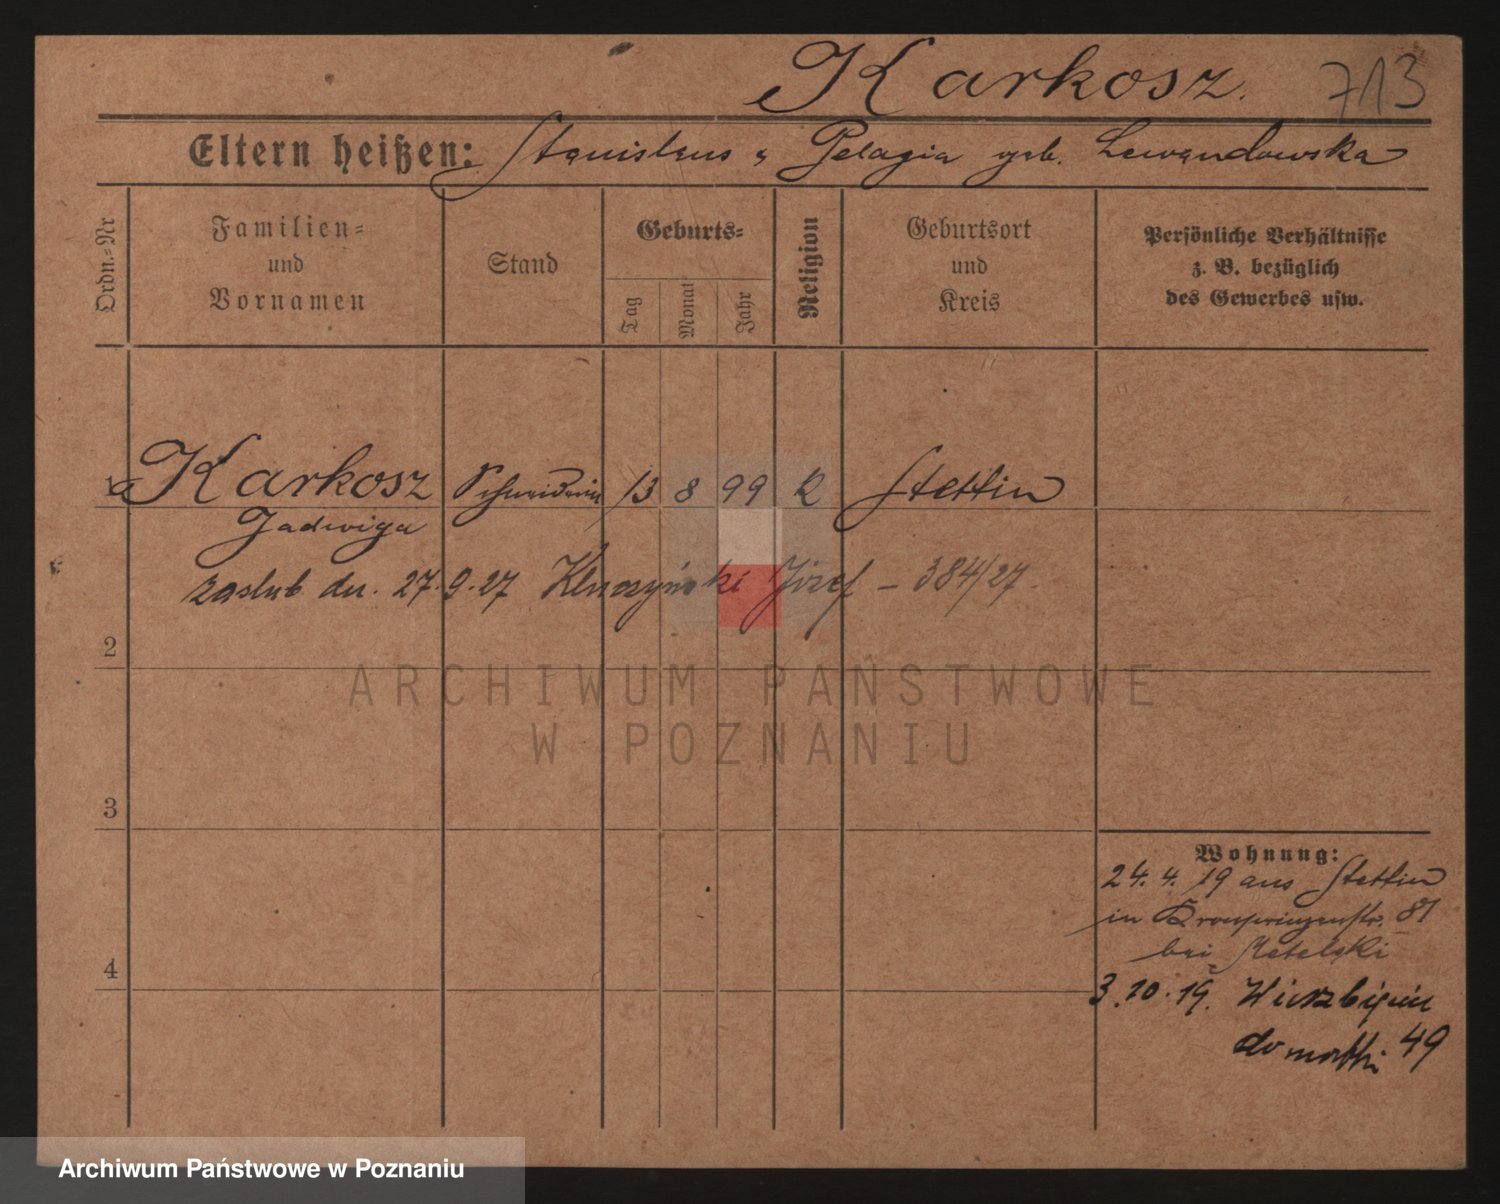 Karkosz. 713
Eltern heißen: Stanislaus & Pelagia geb. Lewandowska
Ordn.-Nr
Familien-
und
Vornamen
Stand
Geburts-
Tag
Monat
Jahr
Religion
Geburtsort
und
Kreis
Persönliche Verhältnisse
z. B. bezüglich
des Gewerbes usw.
1 Karkosz Schneiderin 13 8 99 k Stettin
Jadwiga
zaslub dn. 27.9.27 Józef – 384/27
2
ARCHIWUM PAŃSTWOWE
W POZNANIU
3
Wohnung:
24. 4. 19 aus Stettin
in Kronprinzenstr. 81
bei
4
3.10.19.
do matki 49
Archiwum Państwowe w Poznaniu